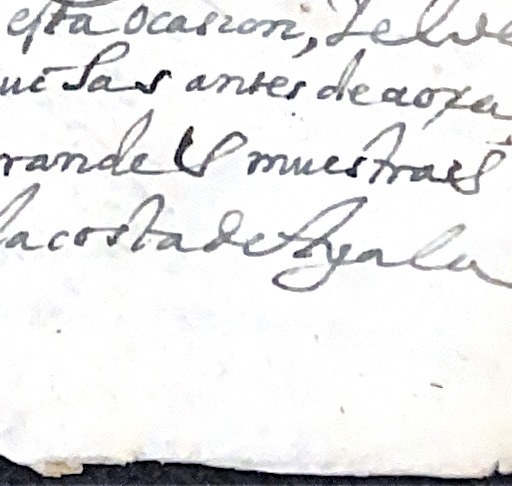 esta ocasion, se
ue las antes de aora
randes muestras
la costa de Ayala